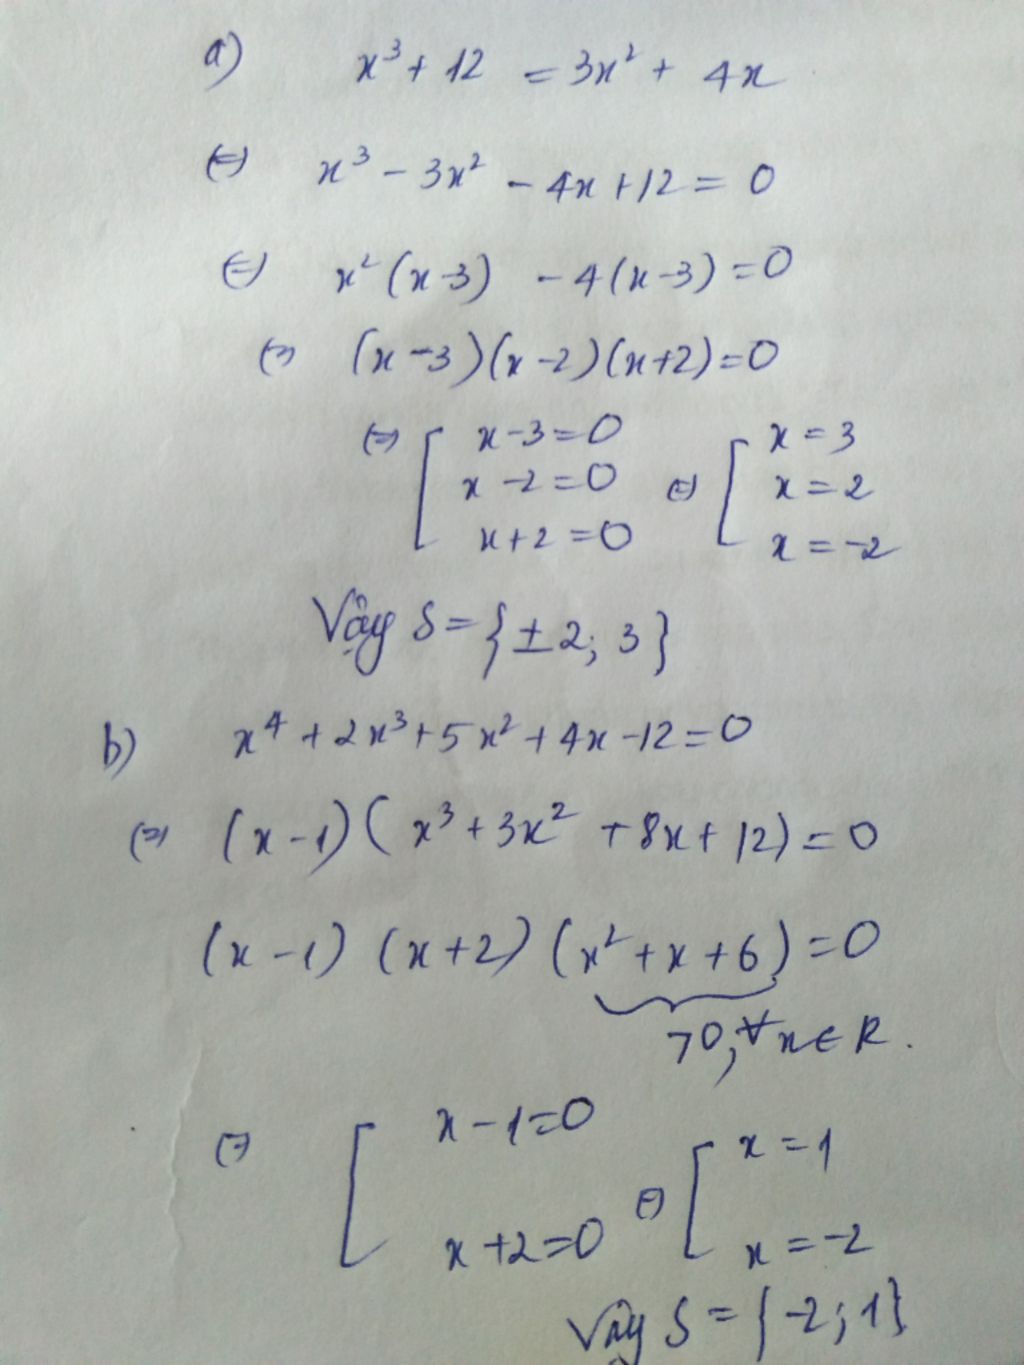 a) x³ + 12 = 3x² + 4x
(=) x³ - 3x² - 4x + 12 = 0
(=) x² (x - 3) - 4(x - 3) = 0
(=) (x - 3)(x - 2)(x + 2) = 0
(=) [ x - 3 = 0 (=) [ x = 3
x - 2 = 0 x = 2
x + 2 = 0 x = -2
Vậy S = { ± 2; 3 }
b) x⁴ + 2x³ + 5x² + 4x - 12 = 0
(=) (x - 1)( x³ + 3x² + 8x + 12) = 0
(x - 1) (x + 2) (x² + x + 6) = 0
>0, ∀x ∈ R.
(=) [ x - 1 = 0 (=) [ x = 1
x + 2 = 0 x = -2
Vậy S = { -2; 1}